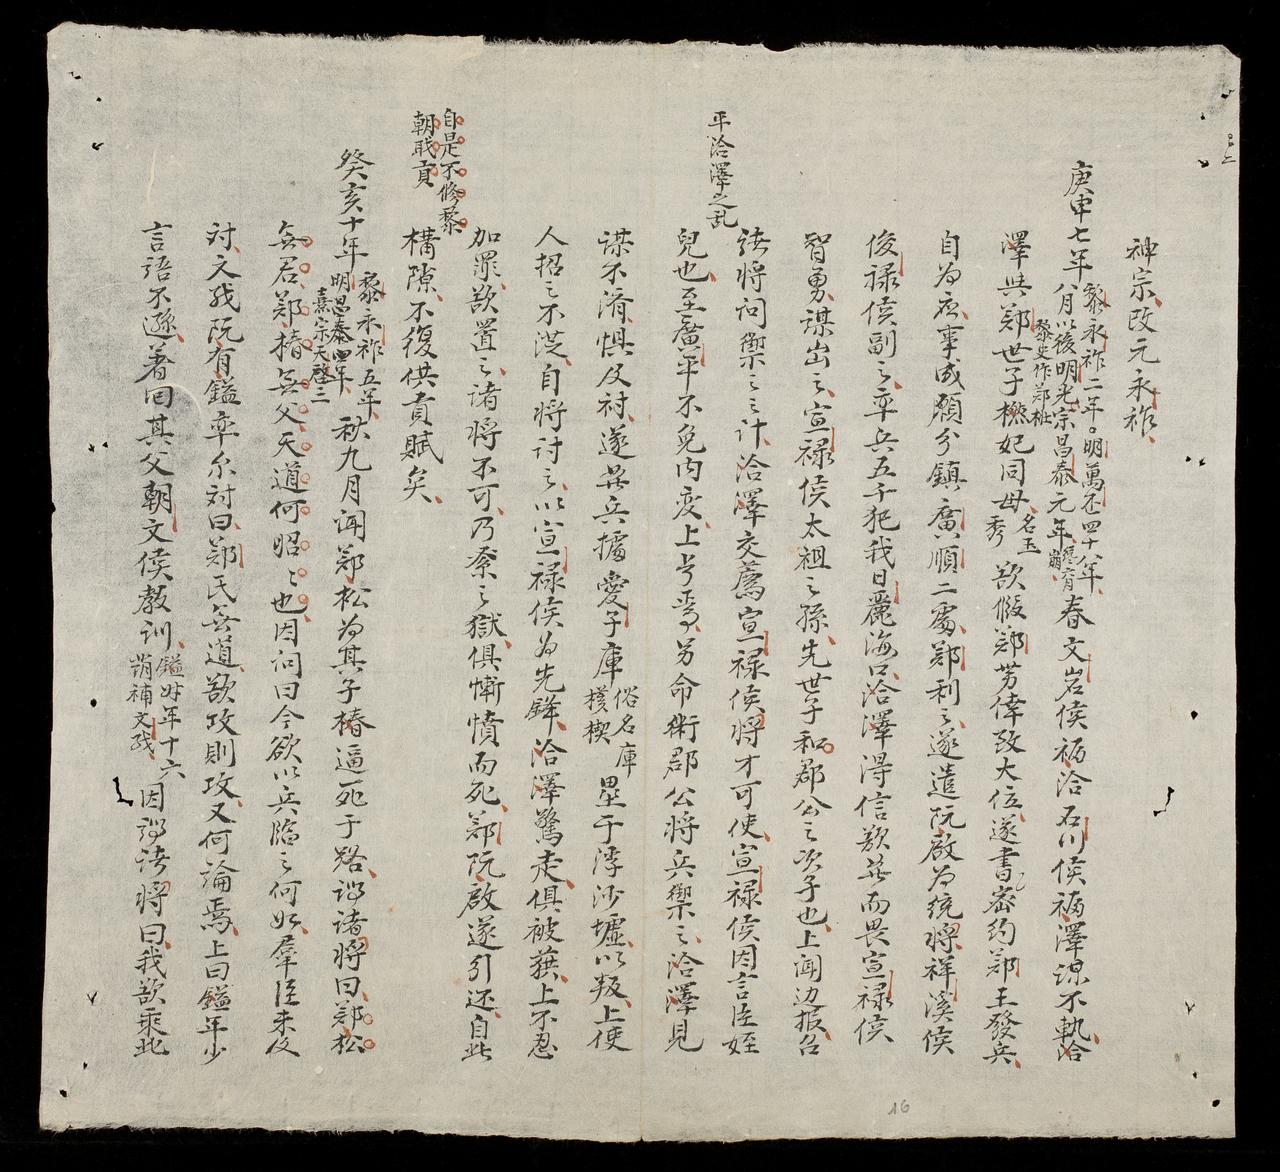 神宗改元永祚
庚申七年黎永祚二年明萬历四十八年八月以後明光宗昌泰元年春文岩侯福洽石川侯福澤謀不執洽
黎史作郑桩
澤與郑世子橃妃同母名玉秀欲假郑势倖致大位遂書密約郑王發兵
自为应事成願分鎮廣順二處郑利之遂遣阮啟为统将祥溪侯
俊禄侯副之率兵五千犯我日麗海口洽澤得信欲兵而畏宣禄侯
智勇謀出之宣禄侯太祖之孫先世子和郡公之次子也上闻边报召
诸将问禦之之计洽澤交薦宣禄侯将才可使宣禄侯因言臣姪
平洽澤之乱
兒也至廣平不免内变上号焉另命術郡公将兵禦之洽澤見
谋不濟惧及討遂兵據愛子庫俗名庫核楔壘于浮沙墟以叛上使
人招之不從自将討之以宣禄侯为先鋒洽澤驚走俱被獲上不忍
加罪欲置之诸将不可乃系之獄俱慚憤而死郑阮啟遂引还自此
自是不修黎朝職貢
構隙不復供貢賦矣
癸亥十年黎永祚五年明昌泰四年熹宗天啓三秋九月闻郑松为其子椿逼死于路谓诸将曰郑松
无君郑椿无父天道何昭之也因问曰今欲以兵临之何如羣臣未及
対文残阮有鎰率尔対曰郑氏无道欲攻則攻又何論焉上曰鎰年少
言語不遜著回其父朝文侯教訓鎰时年十六前補文残因谓诸将曰我欲乘此
16